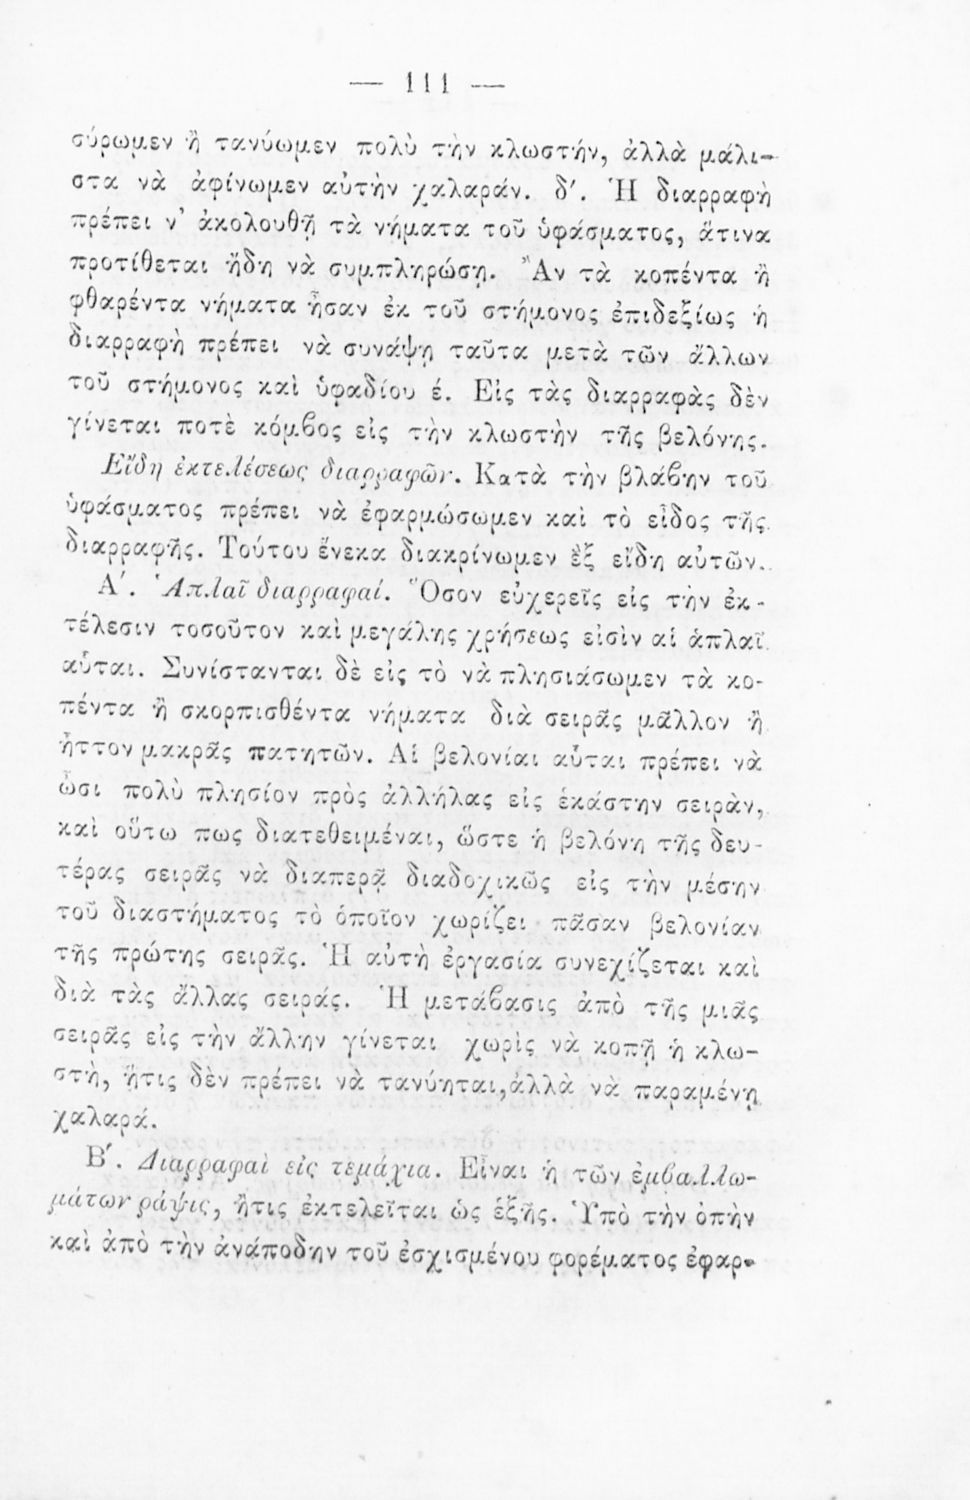 — 111 —
σύρωμεν ἢ τανύωμεν πολὺ τὴν κλωστήν, ἀλλὰ μάλι-
στα νὰ ἀφίνωμεν αὐτὴν χαλαράν. δ′. Ἡ διαρραφὴ
πρέπει ν’ ἀκολουθῇ τὰ νήματα τοῦ ὑφάσματος, ἅτινα
προτίθεται ἤδη νὰ συμπληρώσῃ. Ἂν τὰ κοπέντα ἢ
φθαρέντα νήματα ἦσαν ἐκ τοῦ στήμονος ἐπιδεξίως ἡ
διαρραφὴ πρέπει νὰ συνάψῃ ταῦτα μετὰ τῶν ἄλλων
τοῦ στήμονος καὶ ὑφαδίου έ. Εἰς τὰς διαρραφὰς δὲν
γίνεται ποτὲ κόμβος εἰς τὴν κλωστὴν τῆς βελόνης.
Εἴδη ἐκτελέσεως διαρραφῶν. Κατὰ τὴν βλάβην τοῦ
ὑφάσματος πρέπει νὰ ἐφαρμώσωμεν καὶ τὸ εἶδος τῆς
διαρραφῆς. Τούτου ἕνεκα διακρίνωμεν ἓξ εἴδη αὐτῶν.
Α′. Ἁπλαῖ διαρραφαί. Ὅσον εὐχερεῖς εἰς τὴν ἐκ-
τέλεσιν τοσοῦτον καὶ μεγάλης χρήσεως εἰσὶν αἱ ἁπλαῖ
αὗται. Συνίστανται δὲ εἰς τὸ νὰ πλησιάσωμεν τὰ κο-
πέντα ἢ σκορπισθέντα νήματα διὰ σειρᾶς μᾶλλον ἢ
ἧττον μακρᾶς πατητῶν. Αἱ βελονίαι αὗται πρέπει νὰ
ὦσι πολὺ πλησίον πρὸς ἀλλήλας εἰς ἑκάστην σειρὰν,
καὶ οὕτω πως διατεθειμέναι, ὥστε ἡ βελόνη τῆς δευ-
τέρας σειρᾶς νὰ διαπερᾷ διαδοχικῶς εἰς τὴν μέσην
τοῦ διαστήματος τὸ ὁποῖον χωρίζει πᾶσαν βελονίαν
τῆς πρώτης σειρᾶς. Ἡ αὐτὴ ἐργασία συνεχίζεται καὶ
διὰ τὰς ἄλλας σειράς. Ἡ μετάβασις ἀπὸ τῆς μιᾶς
σειρᾶς εἰς τὴν ἄλλην γίνεται χωρὶς νὰ κοπῇ ἡ κλω-
στὴ, ἥτις δὲν πρέπει νὰ τανύηται, ἀλλὰ νὰ παραμένῃ
χαλαρά.
Β′. Διαρραφαὶ εἰς τεμάχια. Εἶναι ἡ τῶν ἐμβαλλω-
μάτων ράψις, ἥτις ἐκτελεῖται ὡς ἑξῆς. Ὑπὸ τὴν ὀπὴν
καὶ ἀπὸ τὴν ἀνάποδην τοῦ ἐσχισμένου φορέματος ἐφαρ-